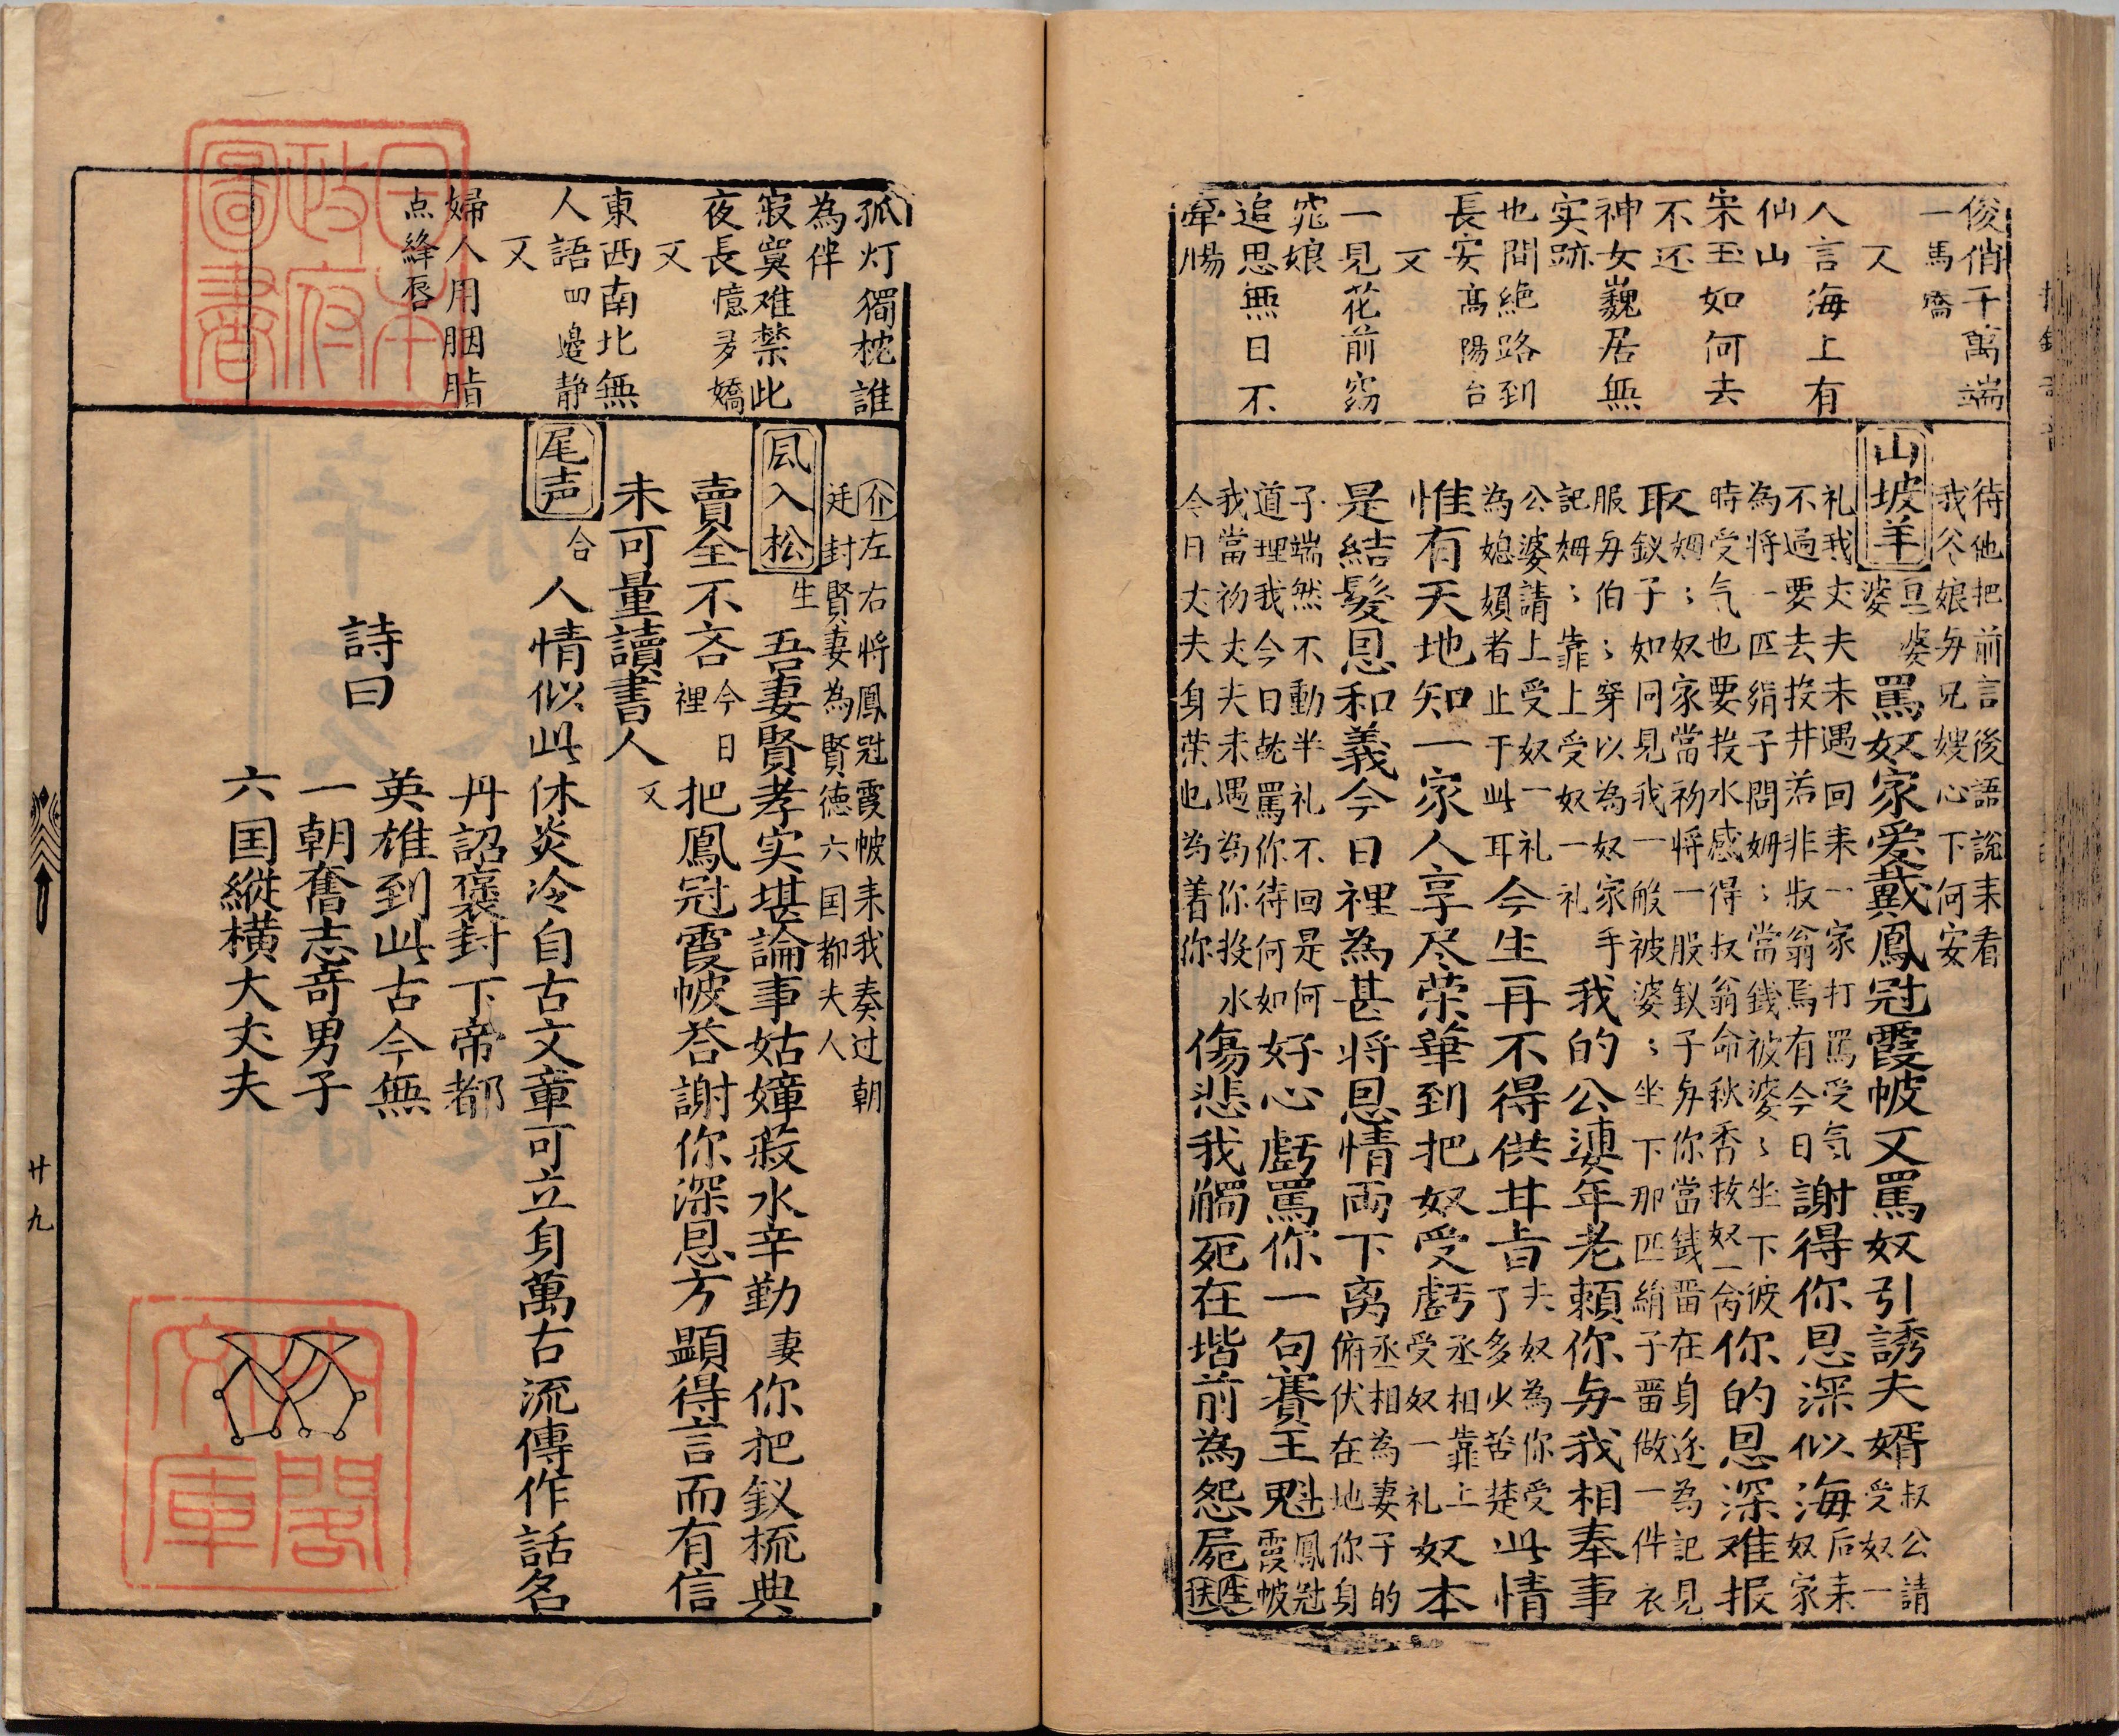 俊俏千萬端
一馬喬
又
人言海上有
仙山
宋玉如何去
不还
神女巍居無
实跡
也問絕路到
長安高陽台
又
一見花前窈
窕娘
追思無日不
牵腸
待他把前言後語說来看
我公娘与兄嫂心下何安
山坡羊
旦
婆婆
罵奴家爱戴鳳冠霞帔又罵奴引誘夫婿
叔公請
受奴一
礼我丈夫未遇回来一家打罵受気
不過要去投井若非叔翁焉有今日
謝得你恩深似海
后来
奴家
為将一匹絹子問姆〻當錢被婆〻坐下彼
時受气也要投水感得叔翁命秋香救奴一命
你的恩深难报
又姆〻奴家當初将一股釵子与你當錢畱在身边為記見
取釵子如同見我一般被婆〻坐下那匹絹子畱做一件衣
服与伯〻穿以為奴家手
記姆〻靠上受奴一礼
我的公婆年老賴你与我相奉事
公婆請上受奴一礼
為媳婦者止于此耳
今生再不得供甘旨
夫奴為你受
了多少苦楚
此情
惟有天地知一家人享尽荣華到把奴受虧
丞相靠上
受奴一礼
奴本
是結髮恩和義今日裡為甚将恩情兩下离
丞相為妻子的
俯伏在地你身
子端然不動半礼不回是何
道理我今日乱罵你待何如
好心虧罵你一句賽王魁
鳳冠
霞帔
我當初丈夫未遇為你投水
今日丈夫身荣也為着你
傷悲我觸死在堦前為怨屍
生
送
孤灯獨枕誰
為伴
寂寞难禁此
夜長憶多嬌
又
東西南北無
人語四邊静
又
婦人用胭脂
点絳唇
介左右将鳳冠霞帔来我奏过朝
廷封賢妻為賢德六国都夫人
風入松
生
吾妻賢孝实堪論事姑嫜菽水辛勤
妻
你把釵梳典
賣全不吝
今日
裡
把鳳冠霞帔荅謝你深恩方顯得言而有信
未可量讀書人
又
尾声
合
人情似此休炎冷自古文章可立身萬古流傳作話名
丹詔褒封下帝都
詩曰
英雄到此古今無
一朝奮志奇男子
六国縱横大丈夫
廿九
日本
政府
圖書
内閣
文庫